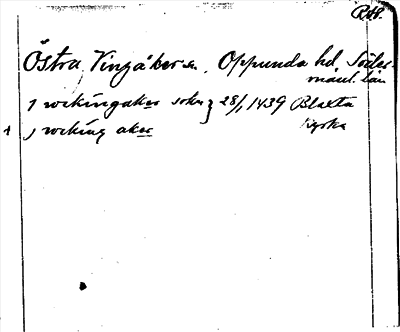 R.H.
Östra Vingåker sn. Oppunda hd. Söder-
manl. län
1 wekingaker sokn } 28/1 1439 Blaxta
j weking aker kyrka